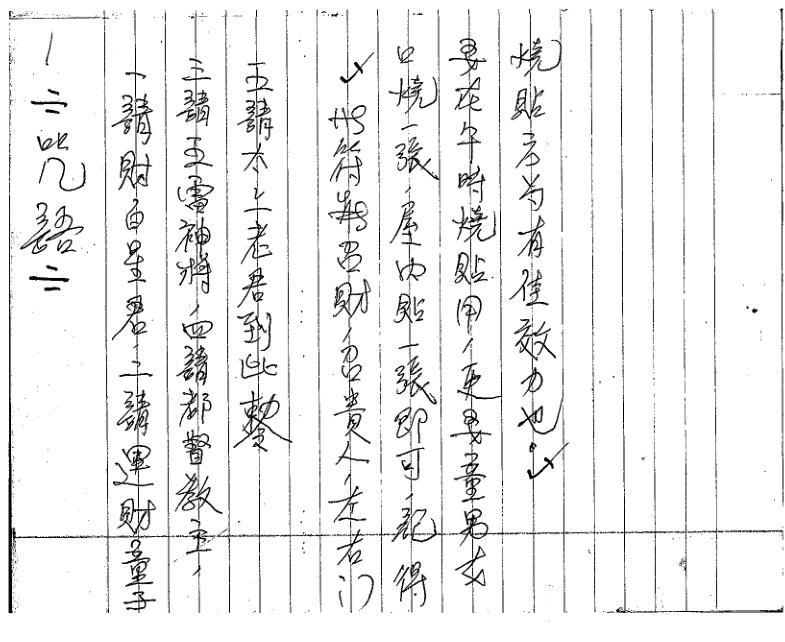 =咒語=
一請財白星君,二請運財童子
三請五雷神將,四請都督教主,
五請太上老君到此敕
此符專召財,召貴人,左右门
口燒一張,屋内貼一張即可,記得
要在午時燒貼用,更要童男女
燒貼方为有佳效力也.